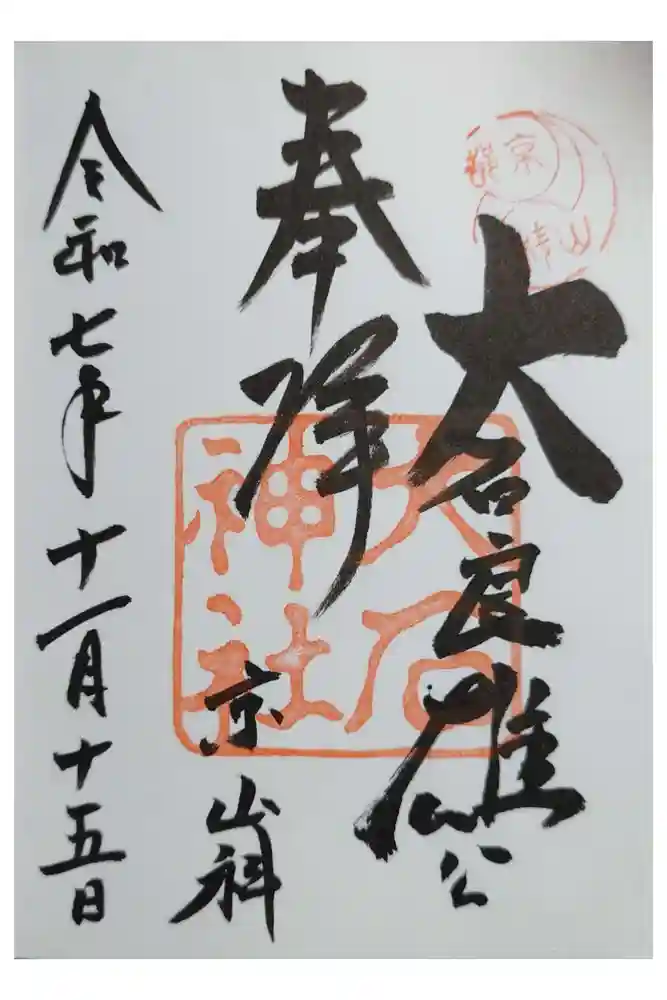 大石良雄公
奉拝
京
山科
令和七年十一月十五日
大石
神社